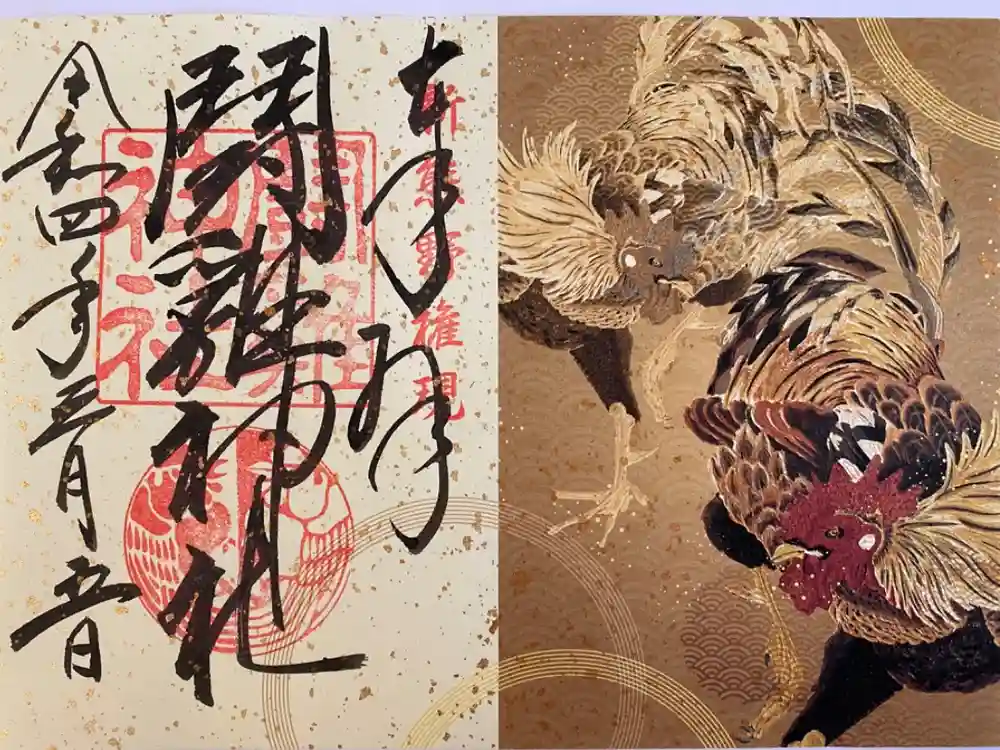 奉拝
新熊野権現
闘雞神社
闘雞神社
令和四年三月五日